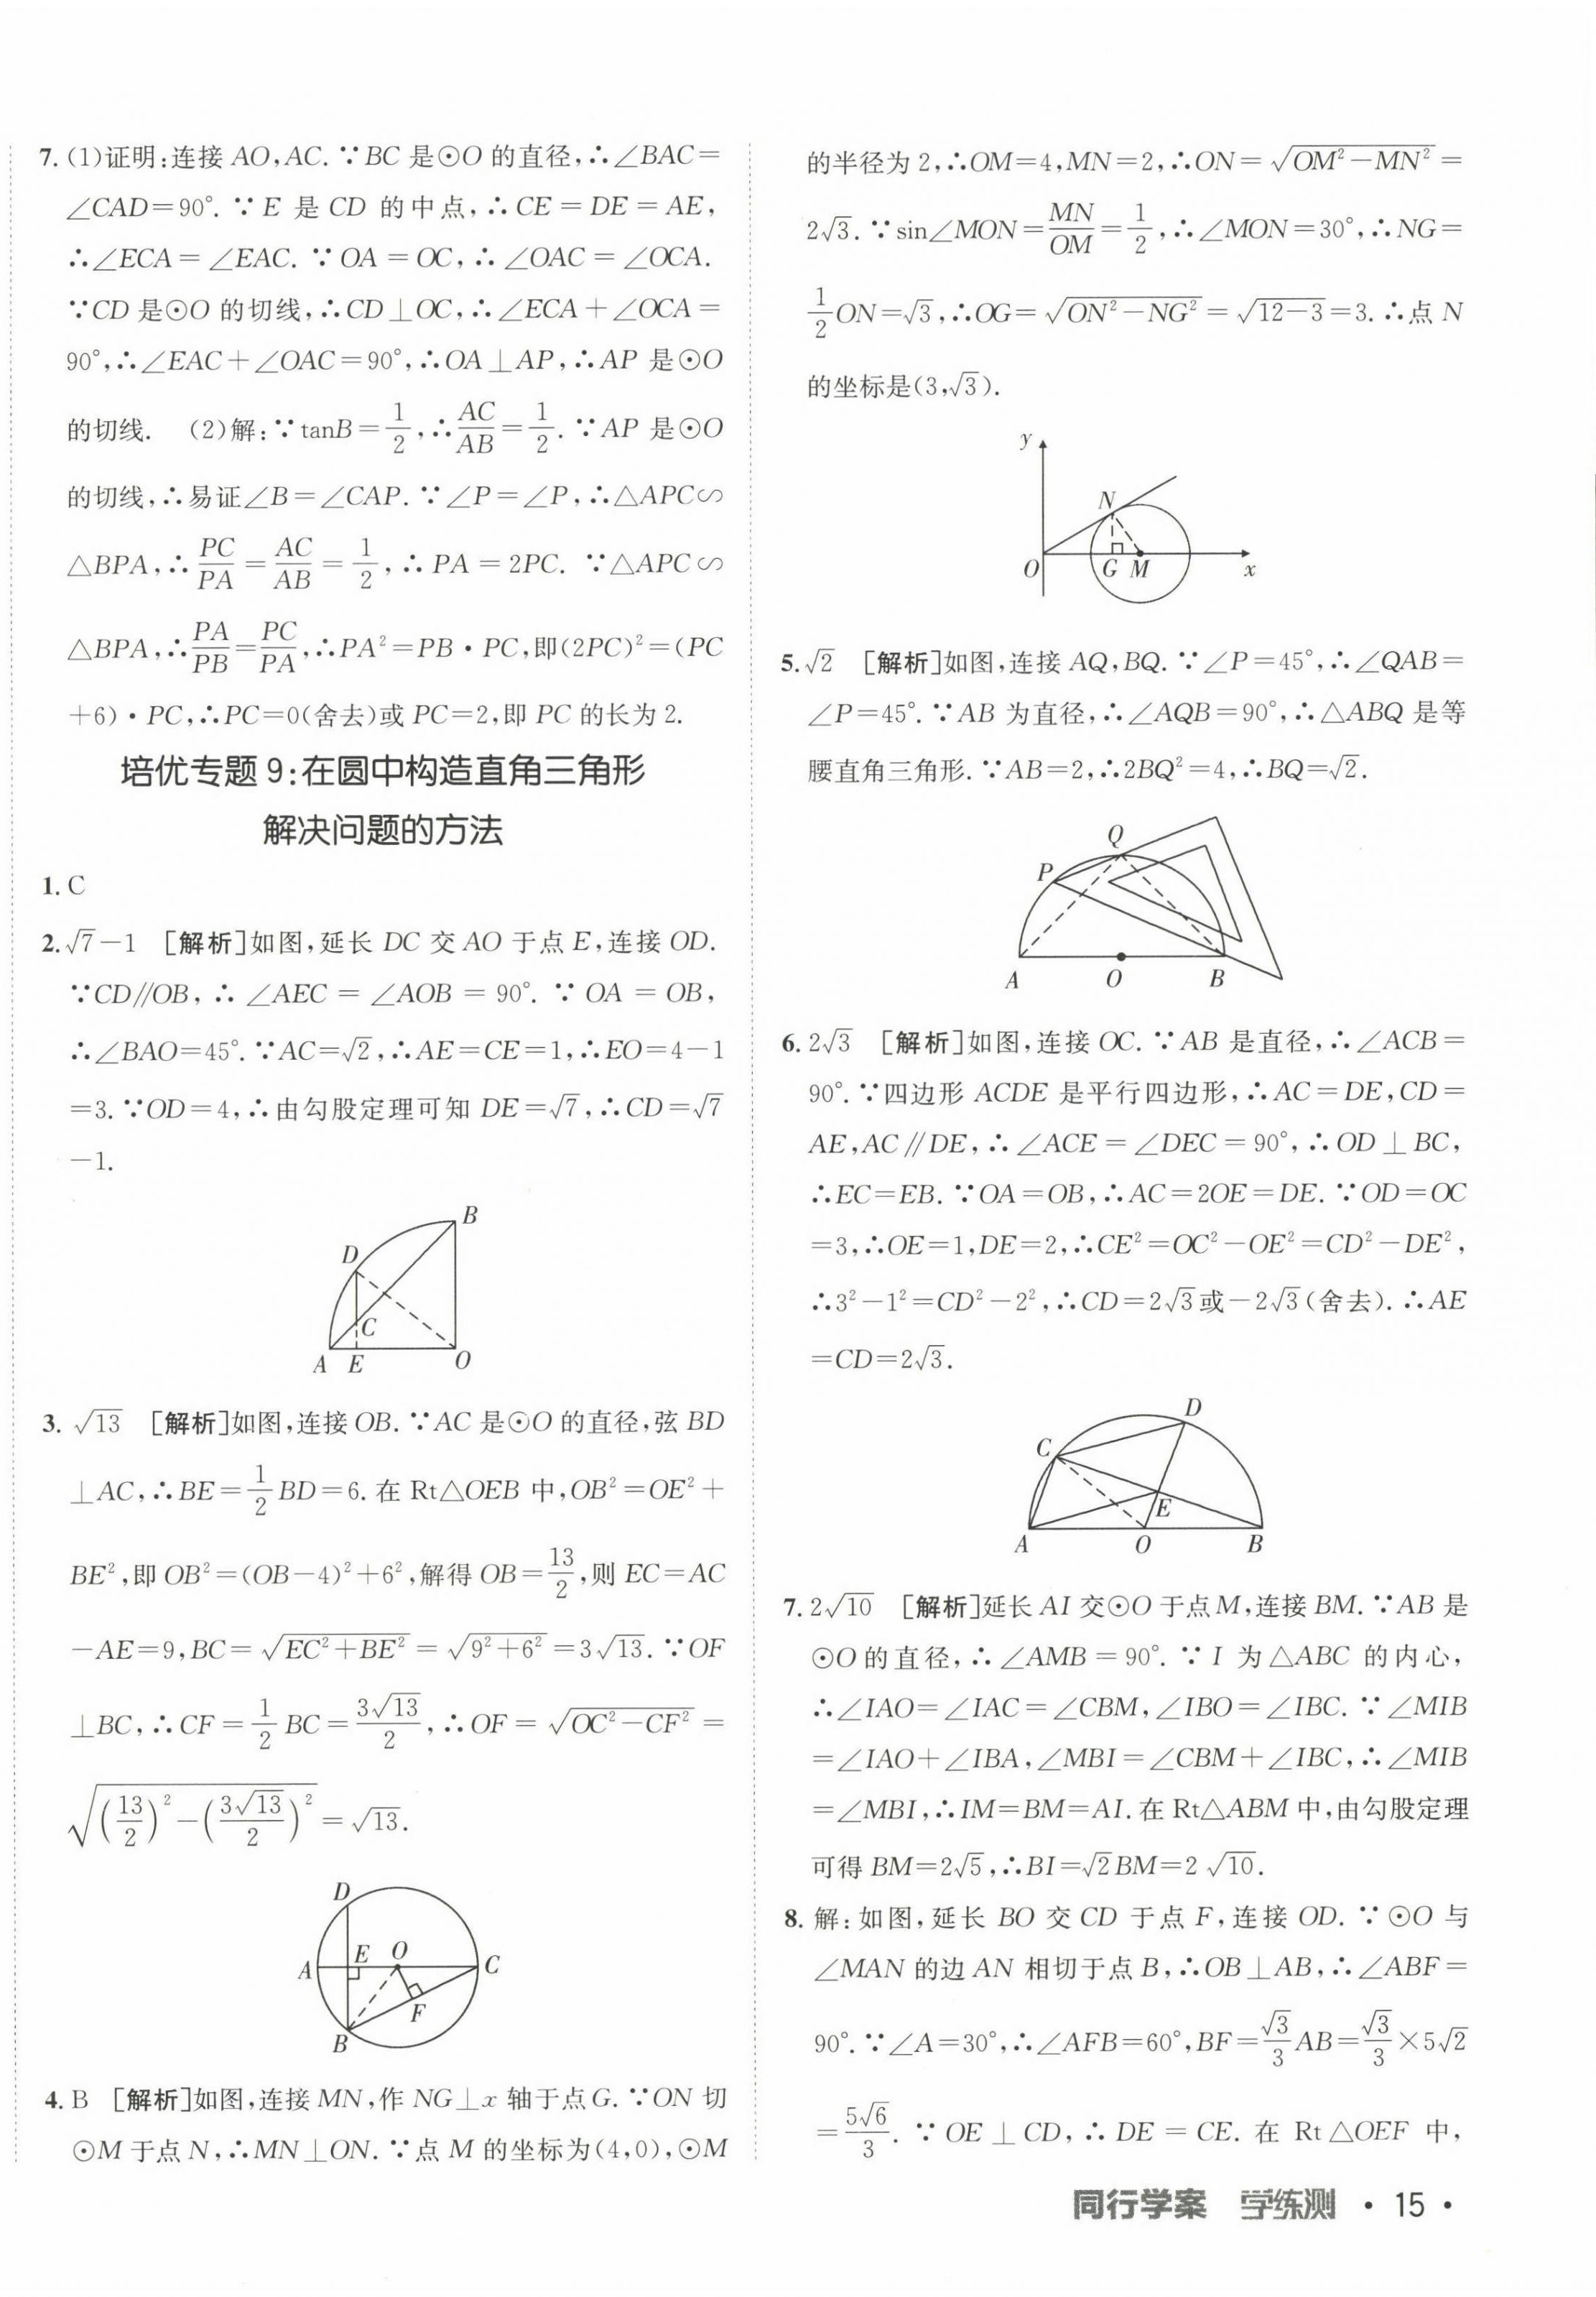 7. (1)证明:连接 AO,AC. ∵BC 是⊙O 的直径,∴∠BAC=
∠CAD=90°. ∵ E 是 CD 的中点,∴ CE = DE = AE,
∴∠ECA = ∠EAC. ∵ OA = OC,∴ ∠OAC = ∠OCA.
∵CD 是⊙O 的切线,∴CD⊥OC,∴∠ECA+∠OCA=
90°,∴∠EAC+∠OAC=90°,∴OA⊥AP,∴AP 是⊙O
的切线. (2)解:∵tanB=1/2,∴AC/AB=1/2. ∵AP 是⊙O
的切线,∴易证∠B=∠CAP. ∵∠P=∠P,∴△APC∽
△BPA,∴PC/PA=AC/AB=1/2,∴PA=2PC. ∵△APC∽
△BPA,∴PA/PB=PC/PA,∴PA²=PB·PC,即(2PC)²=(PC
+6)·PC,∴PC=0(舍去)或 PC=2,即 PC 的长为 2.
培优专题 9:在圆中构造直角三角形
解决问题的方法
1. C
2. √7-1 [解析]如图,延长 DC 交 AO 于点 E,连接 OD.
∵CD∥OB,∴ ∠AEC = ∠AOB = 90°. ∵ OA = OB,
∴∠BAO=45°. ∵AC=√2,∴AE=CE=1,∴EO=4-1
=3. ∵OD=4,∴由勾股定理可知 DE=√7,∴CD=√7
-1.
B
D
C
A E O
3. √13 [解析]如图,连接 OB. ∵AC 是⊙O 的直径,弦 BD
⊥AC,∴BE=1/2BD=6. 在 Rt△OEB 中,OB²=OE²+
BE²,即 OB²=(OB-4)²+6²,解得 OB=13/2,则 EC=AC
-AE=9,BC=√(EC²+BE²)=√(9²+6²)=3√13. ∵OF
⊥BC,∴CF=1/2BC=3√13/2,∴OF=√(OC²-CF²)=
√((13/2)²-(3√13/2)²)=√13.
D
A E O C
F
B
4. B [解析]如图,连接 MN,作 NG⊥x 轴于点 G. ∵ON 切
⊙M 于点 N,∴MN⊥ON. ∵点 M 的坐标为(4,0),⊙M
的半径为 2,∴OM=4,MN=2,∴ON=√(OM²-MN²)=
2√3. ∵sin∠MON=MN/OM=1/2,∴∠MON=30°,∴NG=
1/2ON=√3,∴OG=√(ON²-NG²)=√(12-3)=3. ∴点 N
的坐标是(3,√3).
y
N
O G M x
5. √2 [解析]如图,连接 AQ,BQ. ∵∠P=45°,∴∠QAB=
∠P=45°. ∵AB 为直径,∴∠AQB=90°,∴△ABQ 是等
腰直角三角形. ∵AB=2,∴2BQ²=4,∴BQ=√2.
Q
P
A O B
6. 2√3 [解析]如图,连接 OC. ∵AB 是直径,∴∠ACB=
90°. ∵四边形 ACDE 是平行四边形,∴AC=DE,CD=
AE,AC∥DE,∴∠ACE=∠DEC=90°,∴OD⊥BC,
∴EC=EB. ∵OA=OB,∴AC=2OE=DE. ∵OD=OC
=3,∴OE=1,DE=2,∴CE²=OC²-OE²=CD²-DE²,
∴3²-1²=CD²-2²,∴CD=2√3或-2√3(舍去). ∴AE
=CD=2√3.
D
C
E
A O B
7. 2√10 [解析]延长 AI 交⊙O 于点 M,连接 BM. ∵AB 是
⊙O 的直径,∴∠AMB=90°. ∵ I 为△ABC 的内心,
∴∠IAO=∠IAC=∠CBM,∠IBO=∠IBC. ∵∠MIB
=∠IAO+∠IBA,∠MBI=∠CBM+∠IBC,∴∠MIB
=∠MBI,∴IM=BM=AI. 在 Rt△ABM 中,由勾股定理
可得 BM=2√5,∴BI=√2BM=2√10.
8. 解:如图,延长 BO 交 CD 于点 F,连接 OD. ∵⊙O 与
∠MAN 的边 AN 相切于点 B,∴OB⊥AB,∴∠ABF=
90°. ∵∠A=30°,∴∠AFB=60°,BF=√3/3AB=√3/3×5√2
=5√6/3. ∵OE⊥CD,∴DE=CE. 在 Rt△OEF 中,
同行学案 学练测 · 15 ·